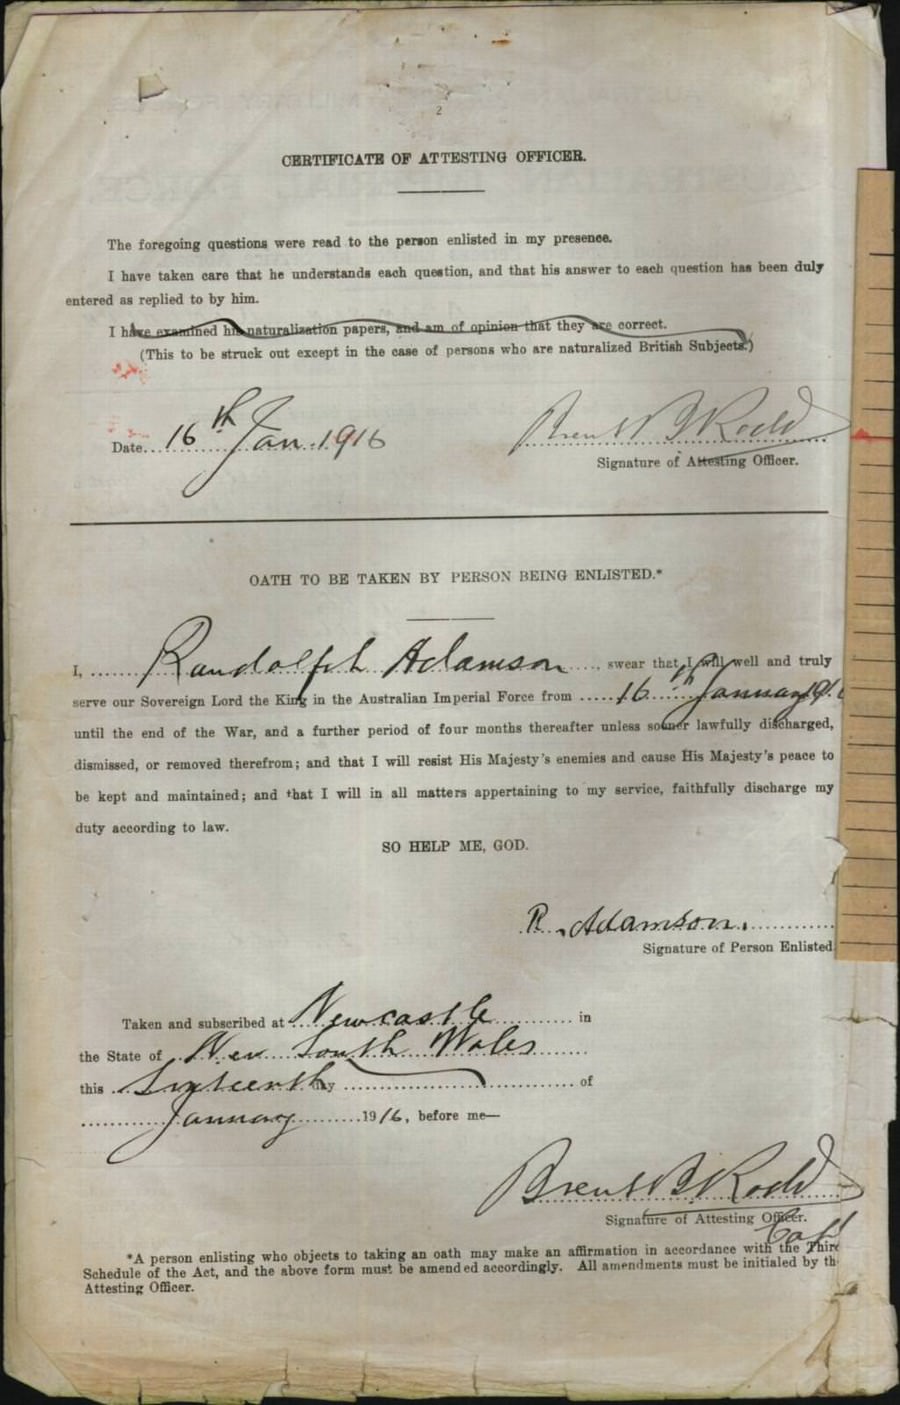 2
CERTIFICATE OF ATTESTING OFFICER.
The foregoing questions were read to the person enlisted in my presence.
I have taken care that he understands each question, and that his answer to each question has been duly
entered as replied to by him.
I have examined his naturalization papers, and am of opinion that they are correct.
(This to be struck out except in the case of persons who are naturalized British Subjects.)
Date 16th Jan 1916 Brent B Rodd
Signature of Attesting Officer.
OATH TO BE TAKEN BY PERSON BEING ENLISTED.*
I, Randolph Adamson, swear that I will well and truly
serve our Sovereign Lord the King in the Australian Imperial Force from 16th January 191
until the end of the War, and a further period of four months thereafter unless sooner lawfully discharged,
dismissed, or removed therefrom; and that I will resist His Majesty's enemies and cause His Majesty's peace to
be kept and maintained; and that I will in all matters appertaining to my service, faithfully discharge my
duty according to law.
SO HELP ME, GOD.
R. Adamson.
Signature of Person Enlisted
Taken and subscribed at Newcastle in
the State of New South Wales
this Sixteenth day of
January 1916, before me—
Brent B. Rodd
Signature of Attesting Officer.
Capt
*A person enlisting who objects to taking an oath may make an affirmation in accordance with the Third
Schedule of the Act, and the above form must be amended accordingly. All amendments must be initialed by th
Attesting Officer.